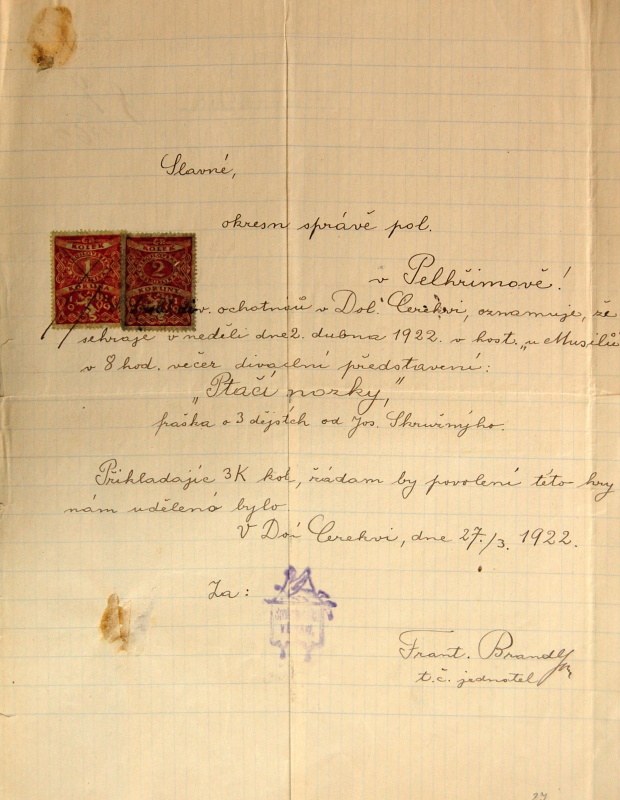 Slavné,
okresn správě pol.
v Pelhřimově!
KOLEK
1
KORUNA
KOLEK
2
KORUNY
div. ochotníků v Dol. Cerekvi, oznamuje, že
sehraje v neděli dne 2. dubna 1922. v host. „u Musilů
v 8 hod. večer divadelní představení:
„Ptačí nožky,"
fraška o 3 dějstch od Jos. Skružnýho.
Přikladajíc 3K kol, řádam by povolení této hry
nám uděleno bylo
V Dol Cerekvi, dne 27./3. 1922.
Za:
Frant. Brandl
t.č. jednatel
27